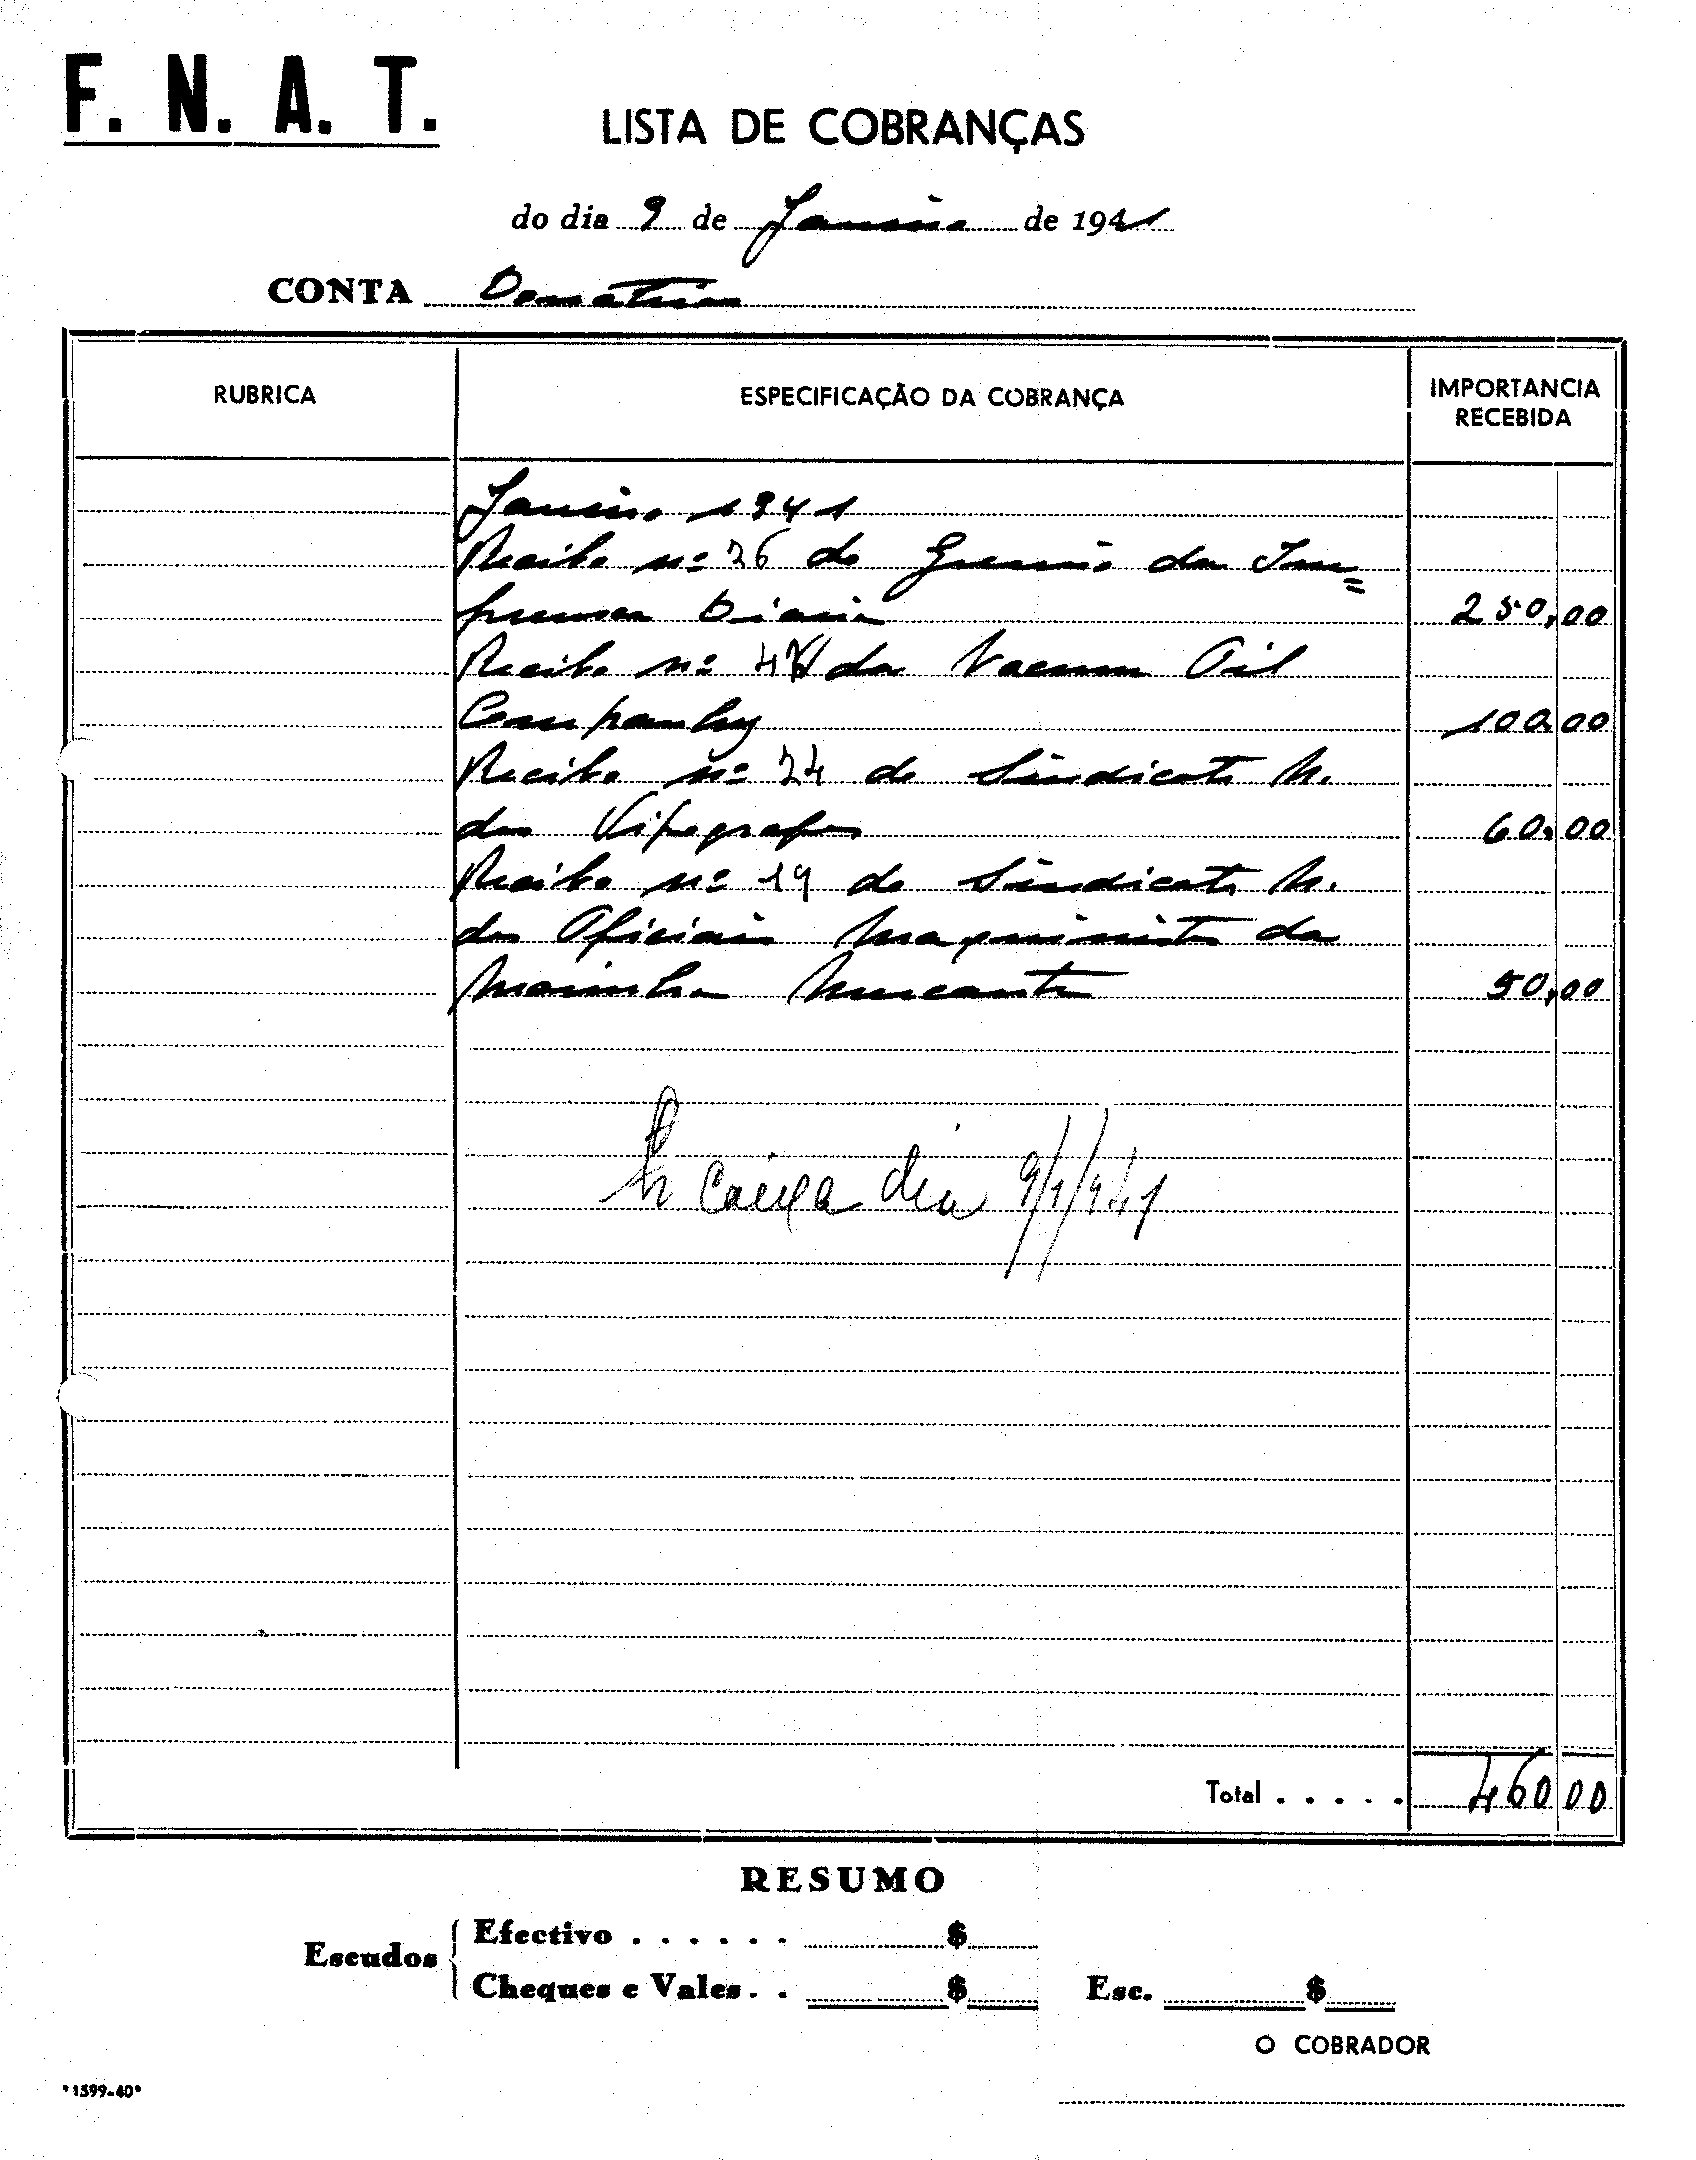 F. N. A. T.
LISTA DE COBRANÇAS
do dia 9 de Janeiro de 1941
CONTA Donativos
RUBRICA ESPECIFICAÇÃO DA COBRANÇA IMPORTANCIA RECEBIDA
Janeiro 1941
Recibo nº 26 do Gremio da Im=
prensa Diaria 250,00
Recibo nº da Vacuum Oil
Companhy 100,00
Recibo nº 24 do Sindicato N.
dos Tipografos 60,00
Recibo nº 19 do Sindicato N.
dos Oficiais Maquinistas da
Marinha Mercante 50,00
caixa dia 9/1/941
Total . . . . . 460 00
RESUMO
Escudos
Efectivo . . . . . . $
Cheques e Vales . . $ Esc. $
O COBRADOR
*1599-40*